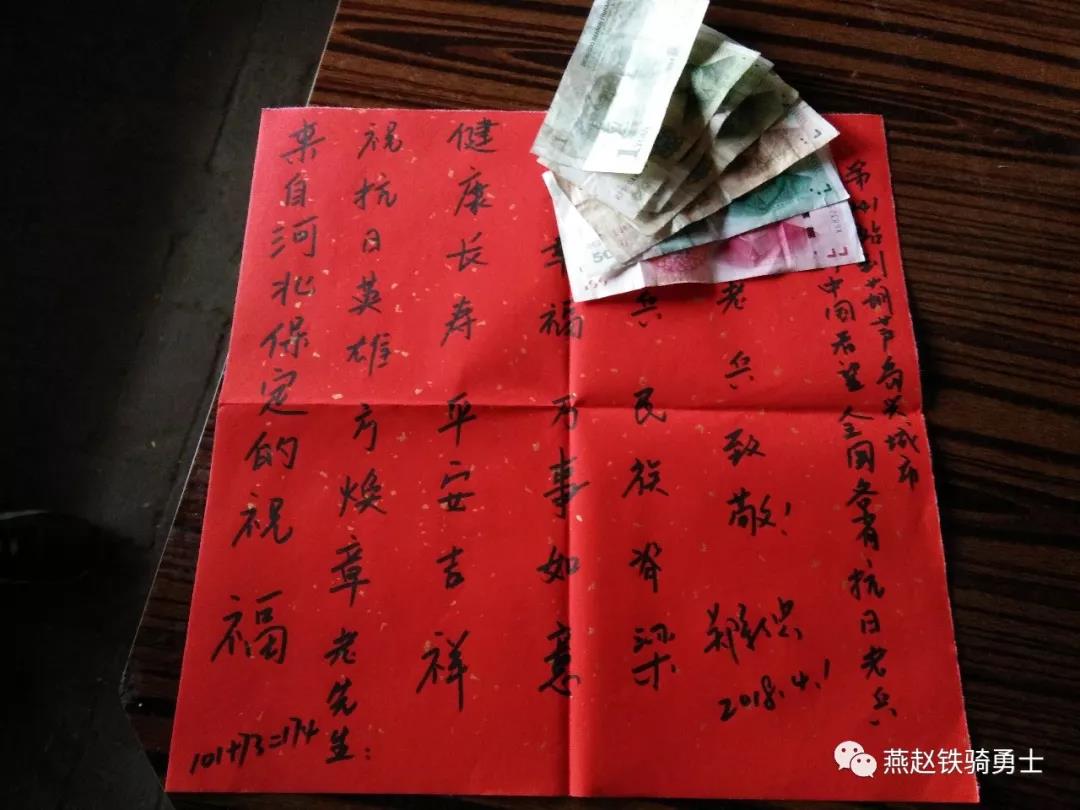 来自河北保定的祝福
101+73=174
祝抗日英雄方焕章老先生：
健康长寿平安吉祥
幸福万事如意
兵民族脊梁
老兵致敬！
郑忠
2018.4.1
中国看望全国各省抗日老兵
第41站到葫芦岛兴城市
1
50
燕赵铁骑勇士